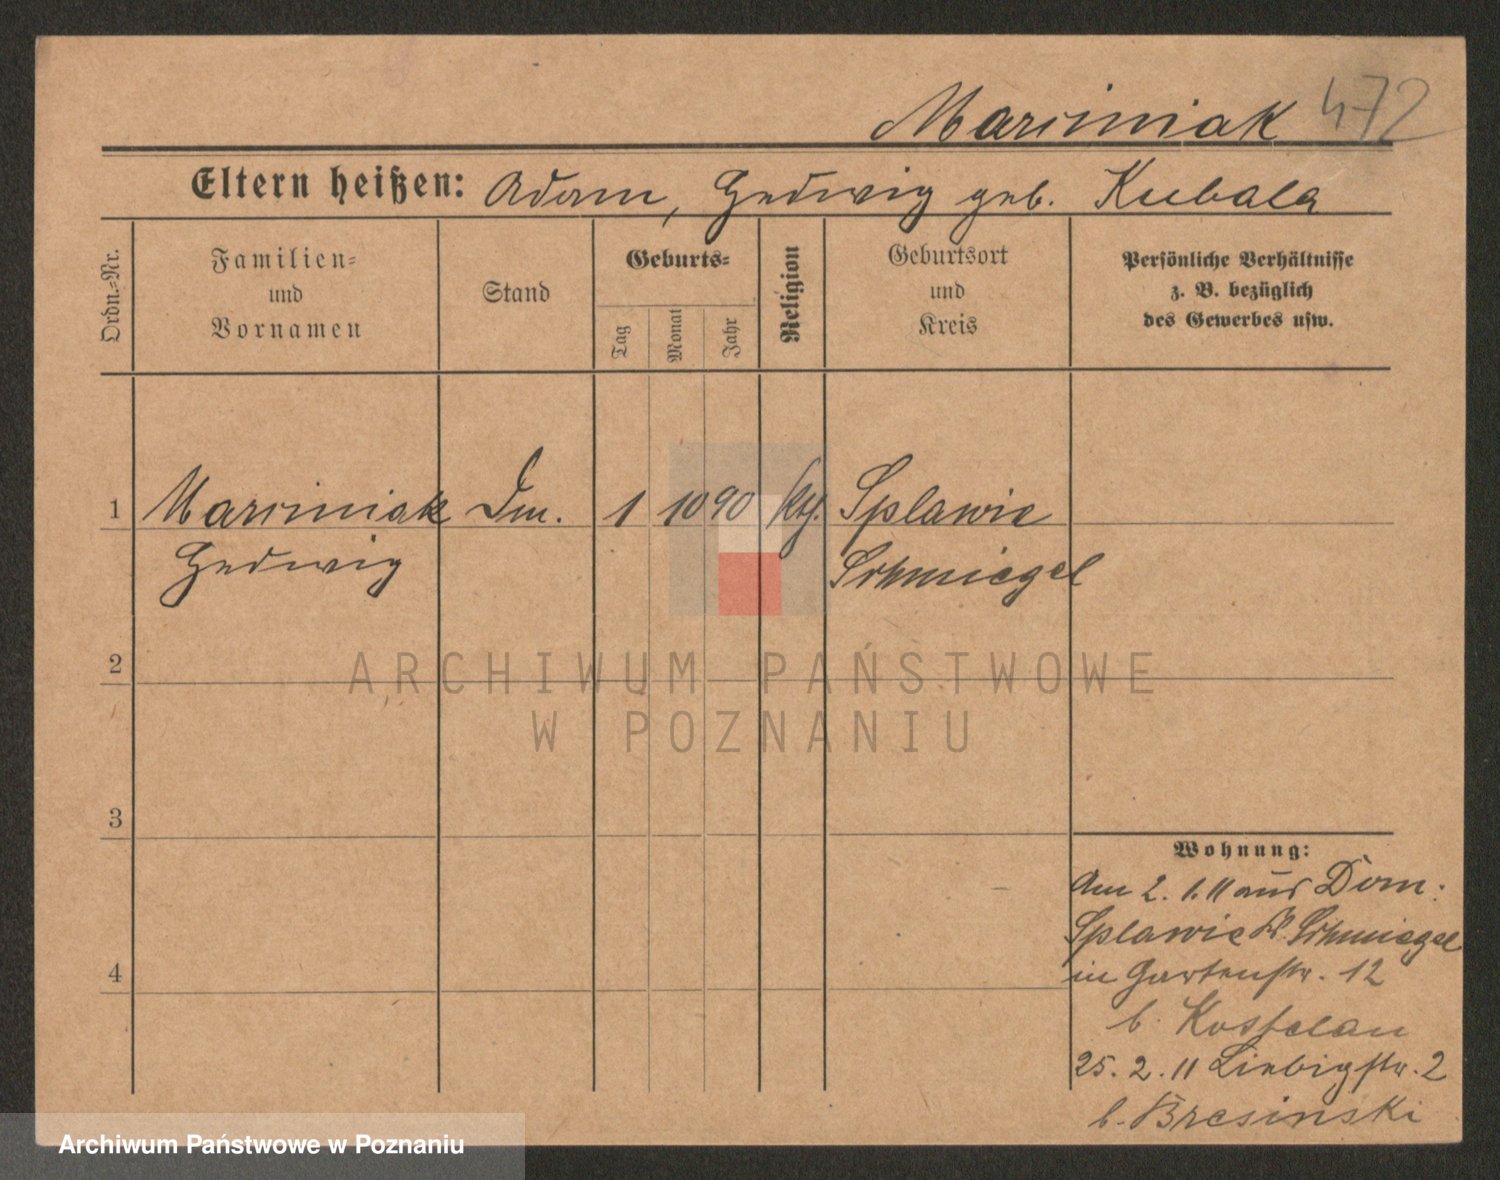 Marciniak 472
Eltern heißen: Adam, Hedwig geb. Kubala
Ordn.-Nr.
Familien-
und
Vornamen
Stand
Geburts-
Tag
Monat
Jahr
Religion
Geburtsort
und
Kreis
Persönliche Verhältnisse
z. B. bezüglich
des Gewerbes usw.
1 Marciniak 1 10 90 kth. Splawie
Hedwig Schmiegel
2
ARCHIWUM PAŃSTWOWE
W POZNANIU
3
Wohnung:
Am 2. 1. 11 aus Dom:
Splawie Schmiegel
4
in Gartenstr. 12
b. Kostelan
25. 2. 11 Liebigstr. 2
b. Bresinski
Archiwum Państwowe w Poznaniu